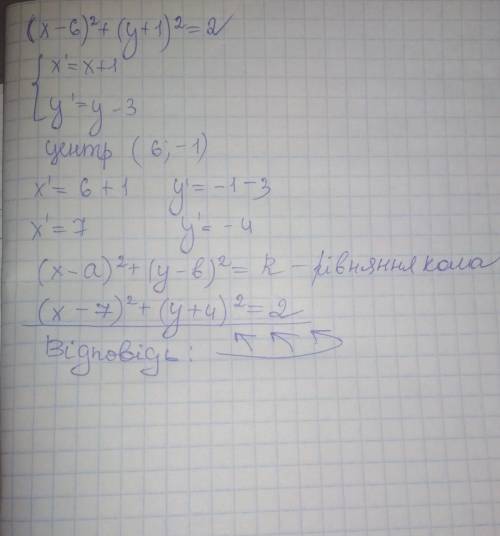 (x-6)²+(y+1)²=2
{ x'=x+1
y'=y-3
центр (6; -1)
x'= 6+1 y'= -1-3
x'= 7 y'= -4
(x-a)²+(y-b)²= R - рівняння кола
(x-7)²+(y+4)²=2
Відповідь: ↖ ↖ ↖